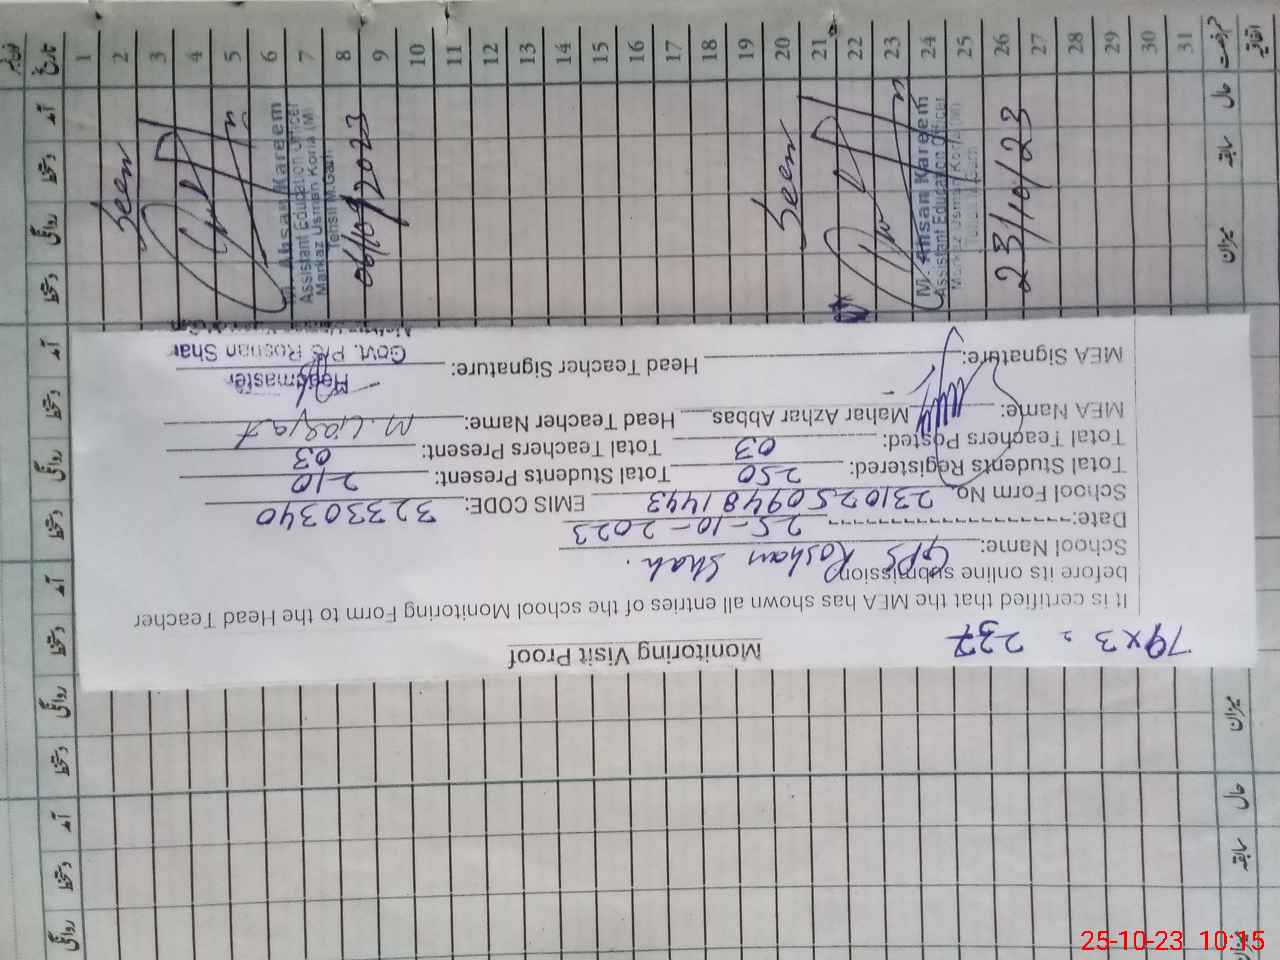 79 x 3 = 237
Monitoring Visit Proof
It is certified that the MEA has shown all entries of the school Monitoring Form to the Head Teacher
before its online submission
School Name: GPS Roshan Shah.
Date: 25-10-2023
School Form No. 23102509481443 EMIS CODE: 32330340
Total Students Registered: 250 Total Students Present: 210
Total Teachers Posted: 03 Total Teachers Present: 03
MEA Name: Mahar Azhar Abbas Head Teacher Name: M. Liaqat
MEA Signature: Head Teacher Signature:
Headmaster
Govt. P/S Roshan Shah
تاریخ 1 2 3 4 5 6 7 8 9 10 11 12 13 14 15 16 17 18 19 20 21 22 23 24 25 26 27 28 29 30 31
آمد
دستخط
روانگی
دستخط
آمد
دستخط
روانگی
دستخط
آمد
دستخط
روانگی
دستخط
آمد
دستخط
روانگی
حال
سابقہ
میزان
میزان
حال
سابقہ
Seen
M. Ahsan Kareem
Assistant Education Officer
Markaz Usman Koria (M)
Tehsil M.Garh
06/10/2023
Seen
M. Ahsan Kareem
Assistant Education Officer
Markaz Usman Koria (M)
23/10/23
25-10-23 10:15